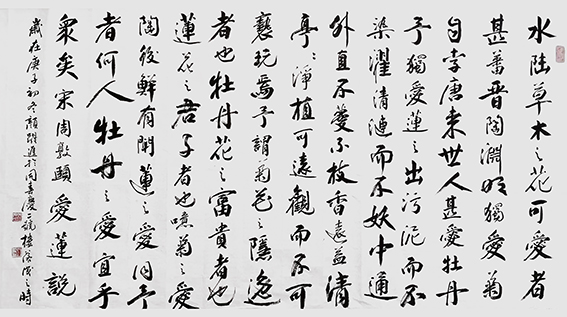 水陸草木之花可愛者
甚蕃晋陶淵明獨愛菊
自李唐来世人甚愛牡丹
予獨愛蓮之出污泥而不
染濯清漣而不妖中通
外直不蔓不枝香遠益清
亭ミ淨植可遠觀而不可
褻玩焉予謂菊花之隱逸
者也牡丹花之富貴者也
蓮花之君子者也噫菊之愛
陶後鮮有聞蓮之愛同予
者何人牡丹之愛宜乎
衆矣宋周敦頤愛蓮説
歲在庚子初冬顏躍進於同喜慶樓之時